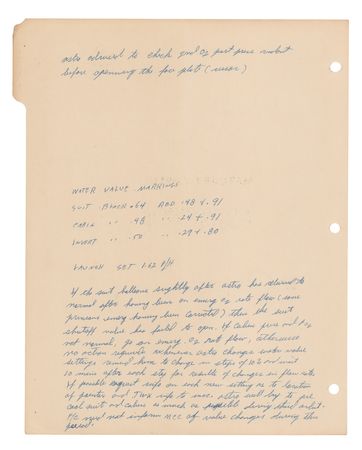 astro advised to check grd O2 part press readout
before openning the fac plate (visor)
WATER VALVE MARKINGS
SUIT BLACK .64 ADD .48 & .91
CABIN " .48 " .24 & .91
INVERT " .50 " .29 & .80
LAUNCH SET 1.62 #/H
If the suit balloons slightly after astro has returned to
normal after having been on emerg O2 rate flow (some
previous emerg having been corrected) then the suit
shutoff valve has failed to open. If cabin press and
not normal, go on emerg O2 rate flow, otherwise
no action required. Whenever astro changes water valve
settings remind him to change in steps of
10 mins after each step for results of changes in flow rate.
If possible request info on each new setting as to location
of pointer and TWX info to next astro well by to pre
cool suit and cabin as much as possible during third orbit.
P/C need not inform MCC of valve changes during this
period.